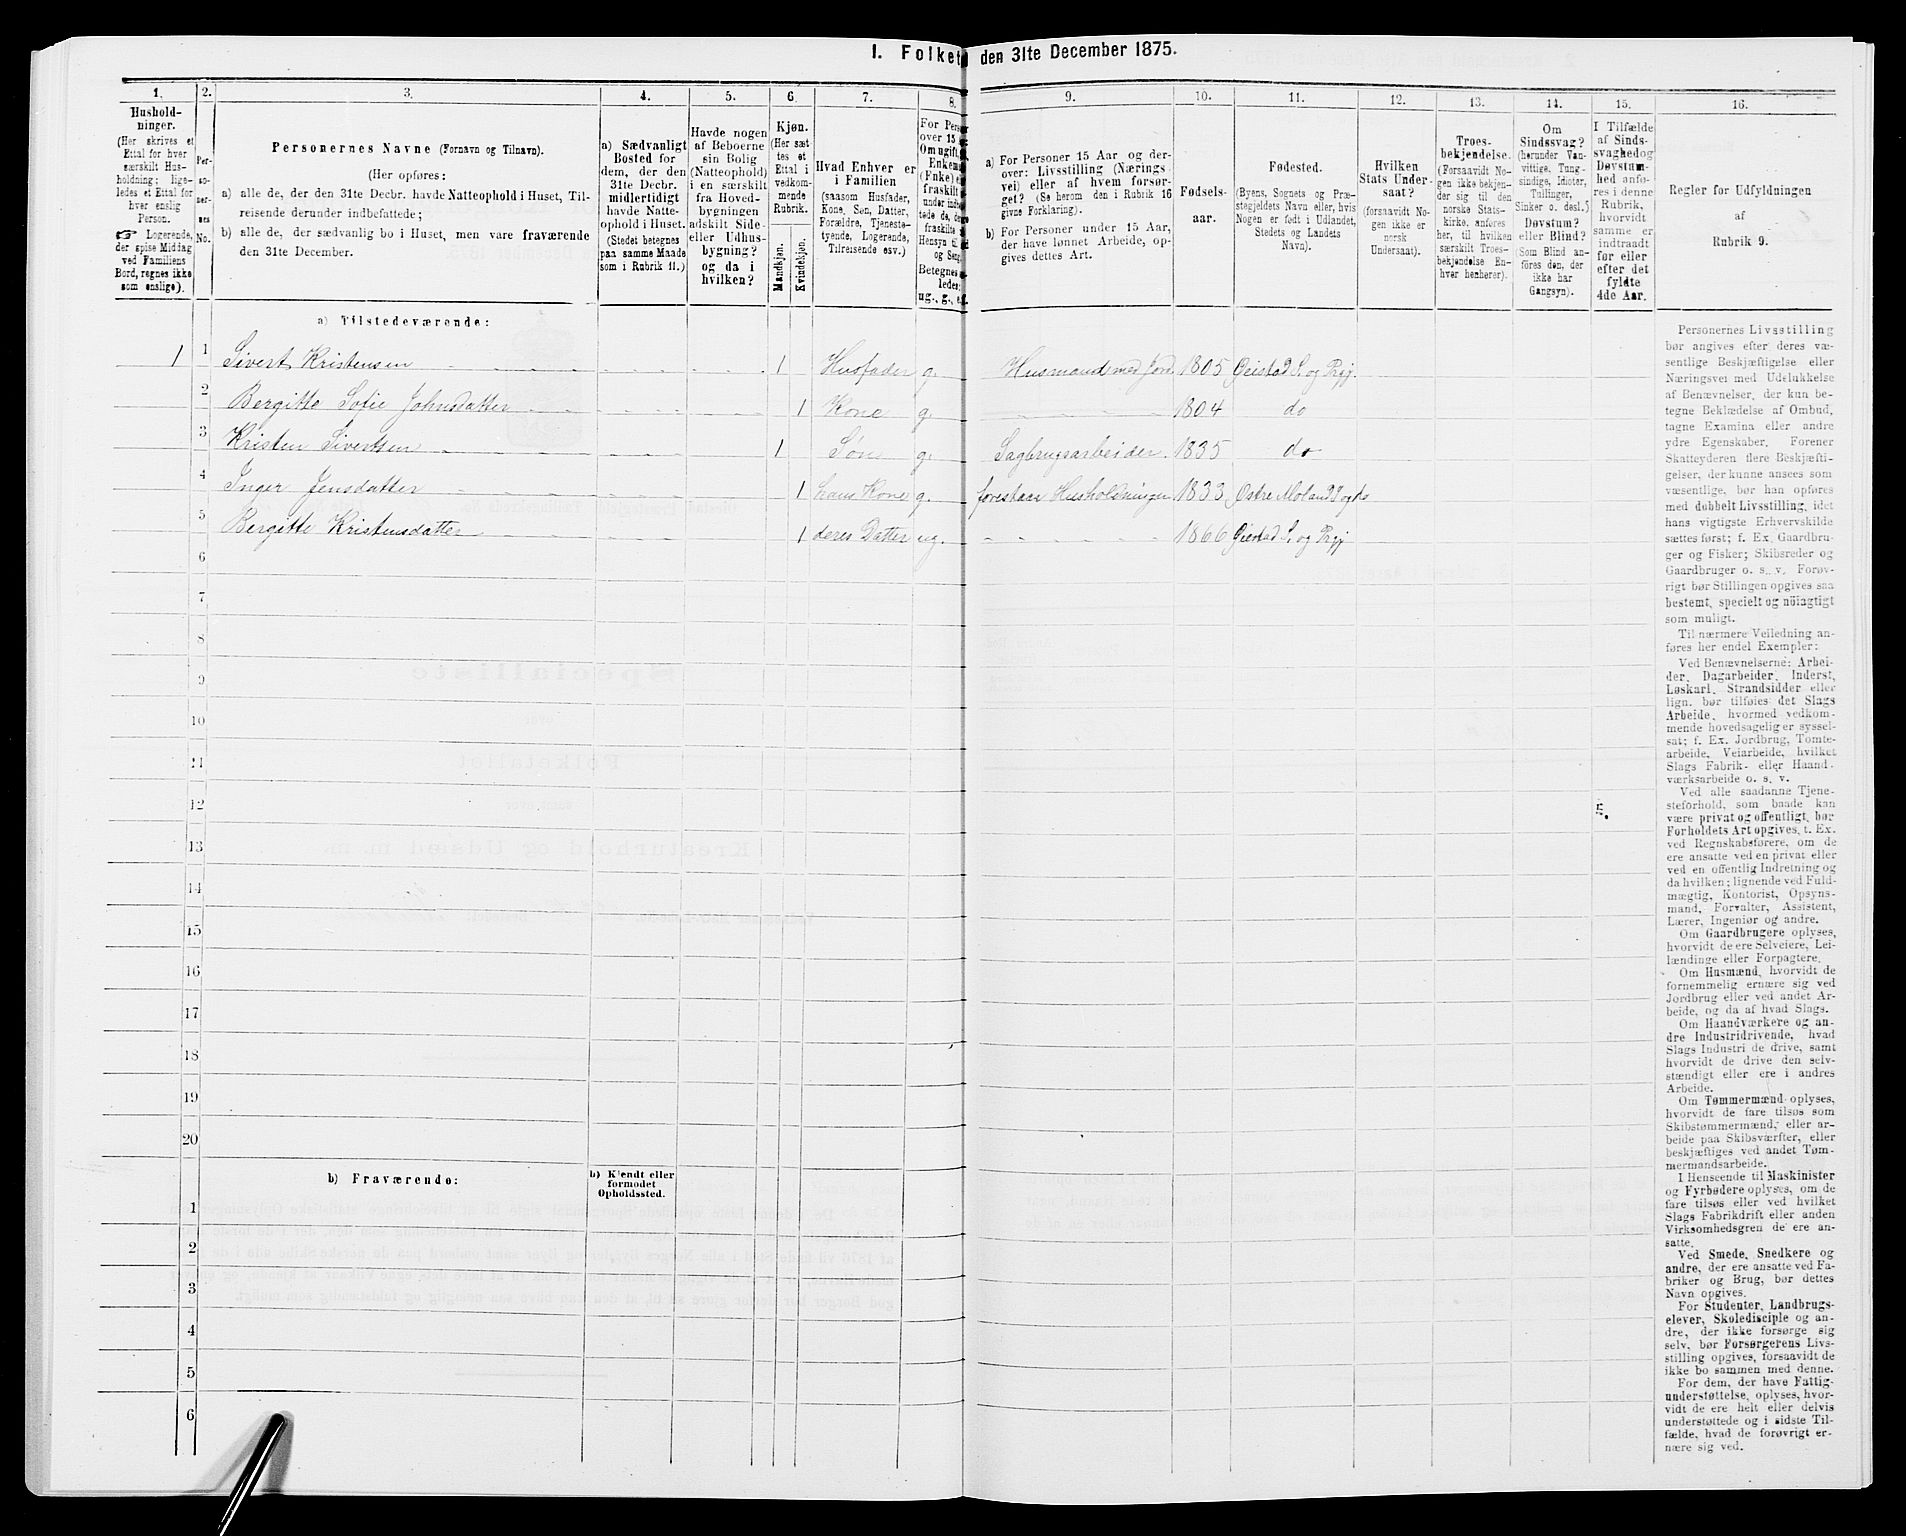 I. Folket den 31te December 1875.
1. 2. 3. 4. 5. 6. 7. 8. 9. 10. 11. 12. 13. 14. 15. 16.
Hushold-
ninger.
(Her skrives et
Ettal for hver
særskilt Hus-
holdning; lige-
ledes et Ettal for
hver enslig
Person.
☞ Logerende,
der spise Middag
ved Familiens
Bord, regnes ikke
som enslige).
Per-
so-
ner-
nes
No.
Personernes Navne (Fornavn og Tilnavn).
(Her opføres:
a) alle de, der den 31te Decbr. havde Natteophold i Huset, Til-
reisende derunder indbefattede;
b) alle de, der sædvanlig bo i Huset, men vare fraværende
den 31te December.
a) Sædvanligt
Bosted for
dem, der den
31te Decbr.
midlertidigt
havde Natte-
ophold i Huset.
(Stedet betegnes
paa samme Maade
som i Rubrik 11.)
Havde nogen
af Beboerne
sin Bolig
(Natteophold)
i en særskilt
fra Hoved-
bygningen
adskilt Side-
eller Udhus-
bygning?
og da i
hvilken?
Kjøn.
(Her sæt
tes et
Ettal i
vedkom-
mende
Rubrik.
Mandkjøn.
Kvindekjøn.
Hvad Enhver er
i Familien
(saasom Husfader,
Kone, Søn, Datter,
Forældre, Tjeneste-
tyende, Logerende,
Tilreisende osv.)
For Pers
over 15
Om ugift,
Enkem
(Enke) e
fraskilt
Betegnes
ledes:
ug., g., e.
a) For Personer 15 Aar og der-
over: Livsstilling (Nærings-
vei) eller af hvem forsør-
get? (Se herom den i Rubrik 16
givne Forklaring).
b) For Personer under 15 Aar,
der have lønnet Arbeide, op-
gives dettes Art.
Fødsels-
aar.
Fødested.
(Byens, Sognets og Præ-
stegjeldets Navn eller, hvis
Nogen er født i Udlandet,
Stedets og Landets
Navn).
Hvilken
Stats Under-
saat?
(forsaavidt No-
gen ikke er
norsk
Undersaat).
Troes-
bekjendelse.
(Forsaavidt No-
gen ikke bekjen-
der sig til den
norske Stats-
kirke, anføres
her, til hvilken
særskilt Troes-
bekjendelse En-
hver henhører).
Om
Sindssvag?
(herunder Van-
vittige, Tung-
sindige, Idioter,
Tullinger,
Sinker o. desl.)
Døvstum?
eller Blind?
(Som Blind an-
føres den, der
ikke har
Gangsyn).
I Tilfælde
af Sinds-
svaghed og
Døvstum-
hed anfø-
res i denne
Rubrik,
hvorvidt
samme er
indtraadt
før eller
efter det
fyldte
4de Aar.
Regler for Udfyldningen
af
Rubrik 9.
a) Tilstedeværende:
1 1 Sivert Kristensen 1 Husfader g. Husmand med Jord 1805 Øiestad S. og Prgj.
2 Bergitte Sofie Johnsdatter 1 Kone g. 1804 do
3 Kristen Sivertsen 1 Søn g. Sagbrugsarbeider 1835 do
4 Inger Jensdatter 1 hans Kone g. forestaar Husholdningen 1833 Østre Moland S og do
5 Bergitte Kristensdatter 1 deres Datter ug. 1866 Øiestad S. og Prgj
6
7
8
9
10
11
12 5.
13
14
15
16
17
18
19
20
b) Fraværende:
b) Kjendt eller
formodet
Opholdssted.
1
2
3
4
5
6
Personernes Livsstilling
bør angives efter deres væ-
sentlige Beskjæftigelse eller
Næringsvei med Udelukkelse
af Benævnelser, der kun be-
tegne Beklædelse af Ombud,
tagne Examina eller andre
ydre Egenskaber. Forener
Skatteyderen flere Beskjæfti-
gelser, der kunne ansees som
væsentlige, bør han opføres
med dobbelt Livsstilling, idet
hans vigtigste Erhvervskilde
sættes først; f. Ex. Gaardbru-
ger og Fisker; Skibsreder og
Gaardbruger o. s. v. Forøv-
rigt bør Stillingen opgives saa
bestemt, specielt og nöiagtigt
som muligt.
Til nærmere Veiledning an-
føres her endel Exempler:
Ved Benævnelserne: Arbei-
der, Dagarbeider, Inderst,
Løskarl, Strandsidder eller
lign. bør tilføies det Slags
Arbeide, hvormed vedkom-
mende hovedsagelig er syssel-
sat; f. Ex. Jordbrug, Tomte-
arbeide, Veiarbeide, hvilket
Slags Fabrik- eller Haand-
værksarbeide o. s. v.
Ved alle saadanne Tjene-
steforhold, som baade kan
være privat og offentligt, bør
Forholdets Art opgives, t. Ex.
ved Regnskabsførere, om de
ere ansatte ved en privat eller
ved en offentlig Indretning og
da hvilken; lignende ved Fuld-
mægtig, Kontorist, Opsyns-
mand, Forvalter, Assistent,
Lærer, Ingeniør og andre.
Om Gaardbrugere oplyses,
hvorvidt de ere Selveiere, Lei-
lændinge eller Forpagtere.
Om Husmænd, hvorvidt de
fornemmelig ernære sig ved
Jordbrug eller ved andet Ar-
beide, og da af hvad Slags.
Om Haandværkere og an-
dre Industridrivende, hvad
Slags Industri de drive, samt
hvorvidt de drive den selv-
stændigt eller ere i andres
Arbeide.
Om Tømmermænd oplyses,
hvorvidt de fare tilsøs som
Skibstømmermænd, eller ar-
beide paa Skibsværfter, eller
beskjæftiges ved andet Tøm-
mermandsarbeide.
I Henseende til Maskinister
og Fyrbødere oplyses, om de
fare tilsøs eller ved hvilket
Slags Fabrikdrift eller anden
Virksomhedsgren de ere an-
satte.
Ved Smede, Snedkere og
andre, der ere ansatte ved Fa-
briker og Brug, bør dettes
Navn opgives.
For Studenter, Landbrugs-
elever, Skoledisciple og an-
dre, der ikke forsørge sig
selv, bør Forsørgerens Livs-
stilling opgives, forsaavidt de
ikke bo sammen med denne.
For dem, der have Fattig-
understøttelse, oplyses, hvor-
vidt de ere helt eller delvis
understøttede og i sidste Til-
fælde, hvad de forøvrigt er-
nære sig ved.